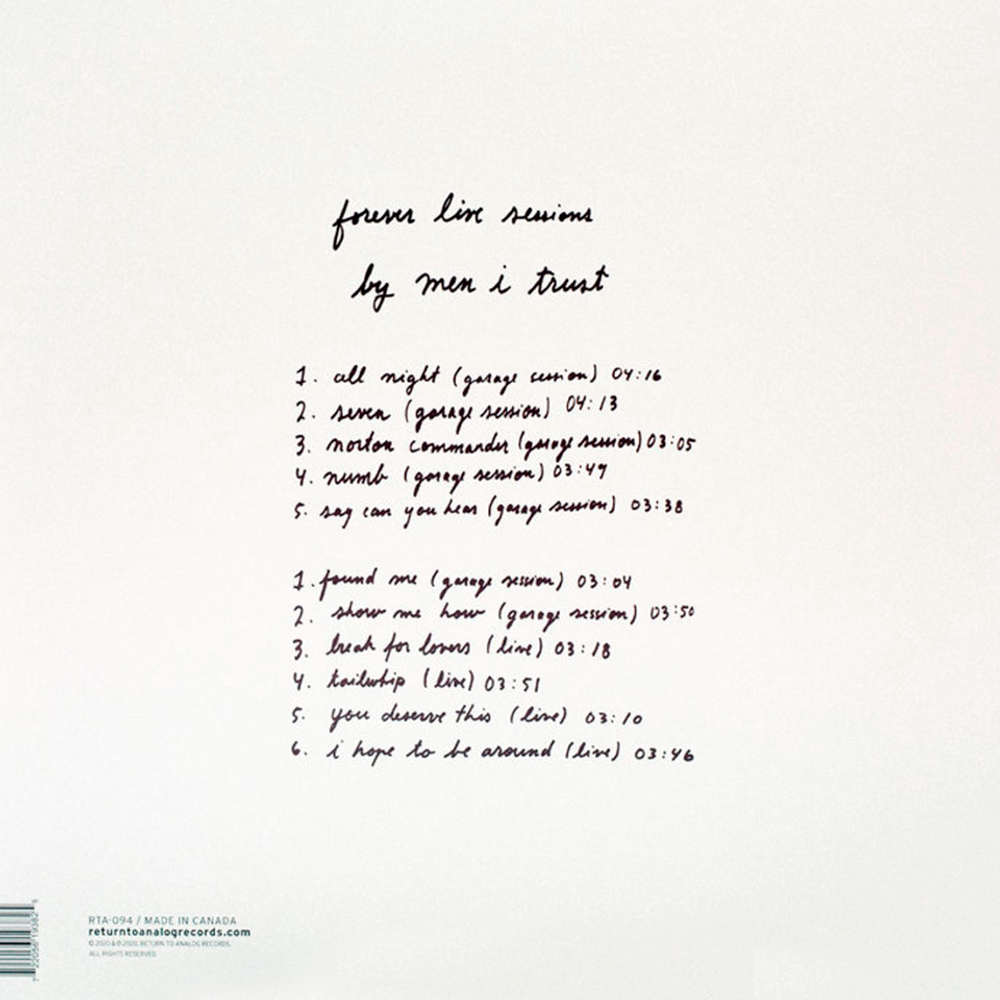 forever live sessions
by men i trust
1. all night (garage session) 04:16
2. seven (garage session) 04:13
3. norton commander (garage session) 03:05
4. numb (garage session) 03:49
5. say can you hear (garage session) 03:38
1. found me (garage session) 03:04
2. show me how (garage session) 03:50
3. break for lovers (live) 03:18
4. tailwhip (live) 03:51
5. you deserve this (live) 03:10
6. i hope to be around (live) 03:46
RTA-094 / MADE IN CANADA
returntoanalogrecords.com
© 2020 & ℗ 2020, RETURN TO ANALOG RECORDS.
ALL RIGHTS RESERVED.